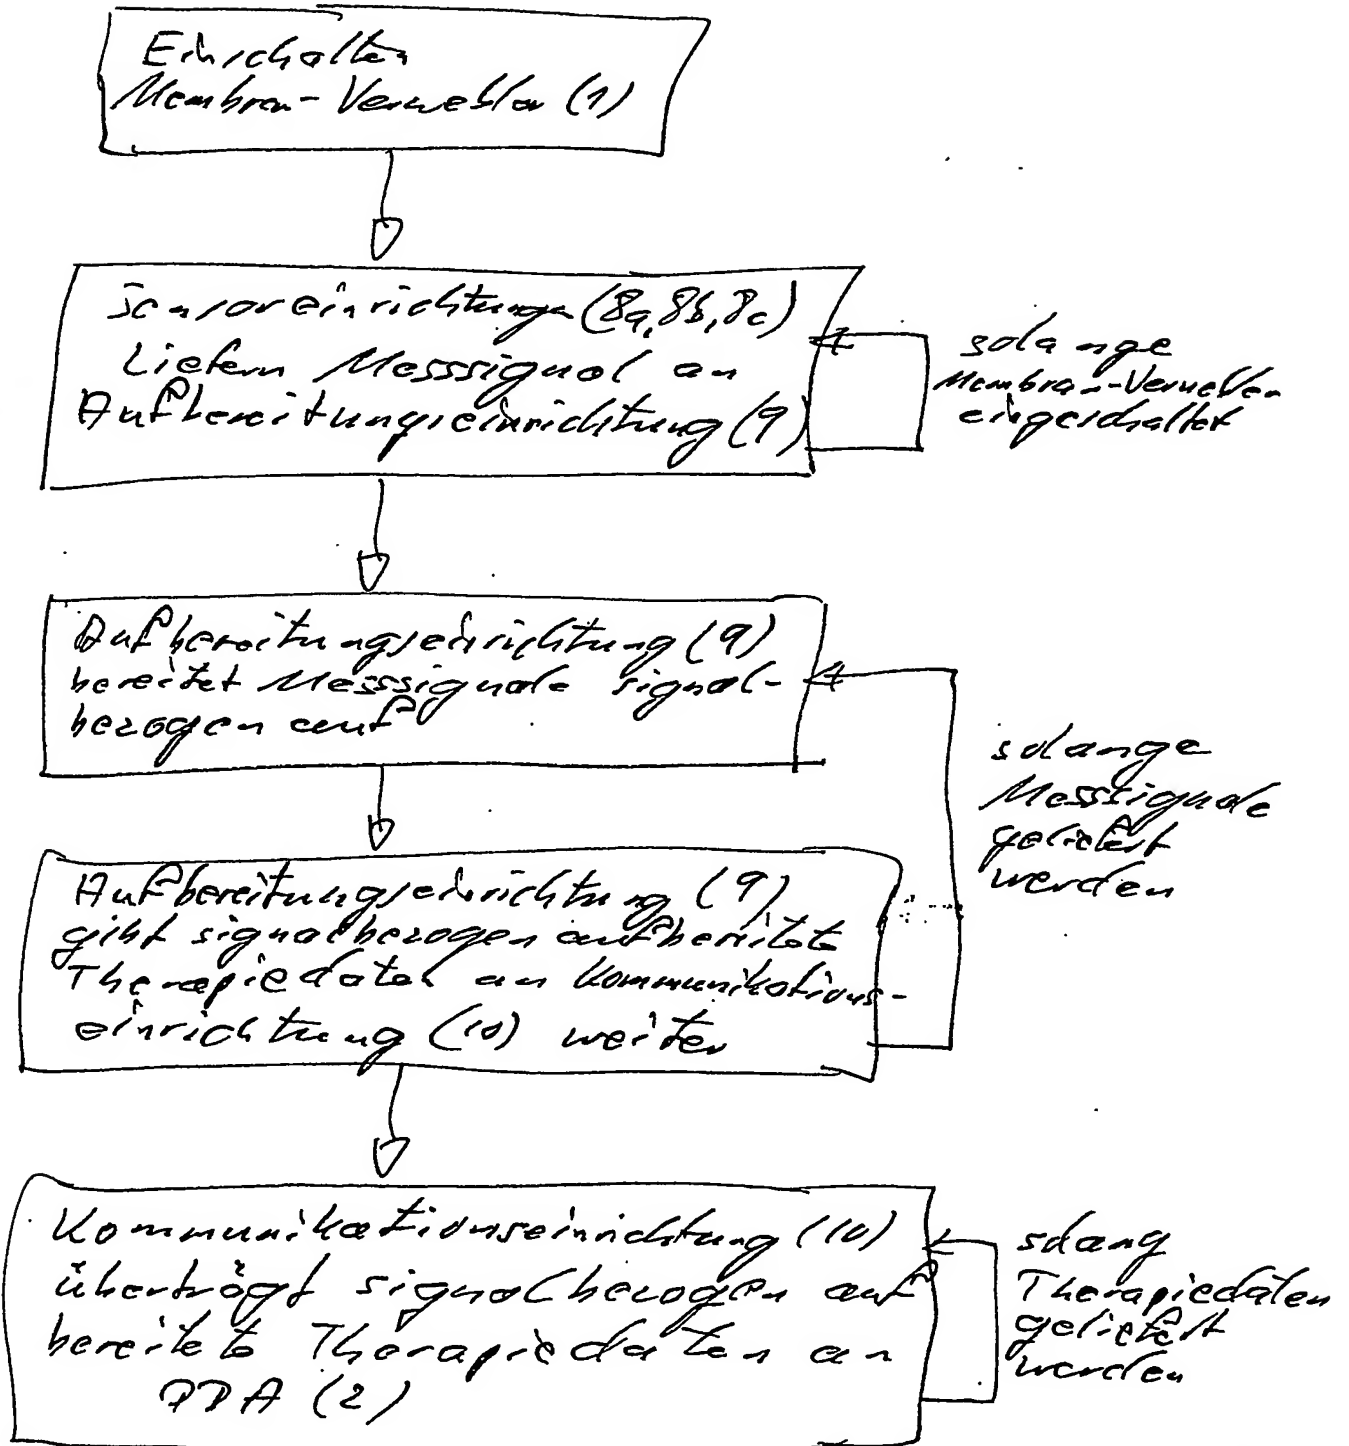 Einschalten
Membran-Vernebler (1)
Sensoreinrichtungen (8a, 8b, 8c)
Liefern Messsignal an
Aufbereitungseinrichtung (9)
solange
Membran-Vernebler
eingeschaltet
Aufbereitungseinrichtung (9)
bereitet Messsignale signal-
bezogen auf
solange
Messsignale
geliefert
werden
Aufbereitungseinrichtung (9)
gibt signalbezogen aufbereitete
Therapiedaten an Kommunikations-
einrichtung (10) weiter
Kommunikationseinrichtung (10)
überträgt signalbezogen auf
bereitete Therapiedaten an
PDA (2)
solang
Therapiedaten
geliefert
werden